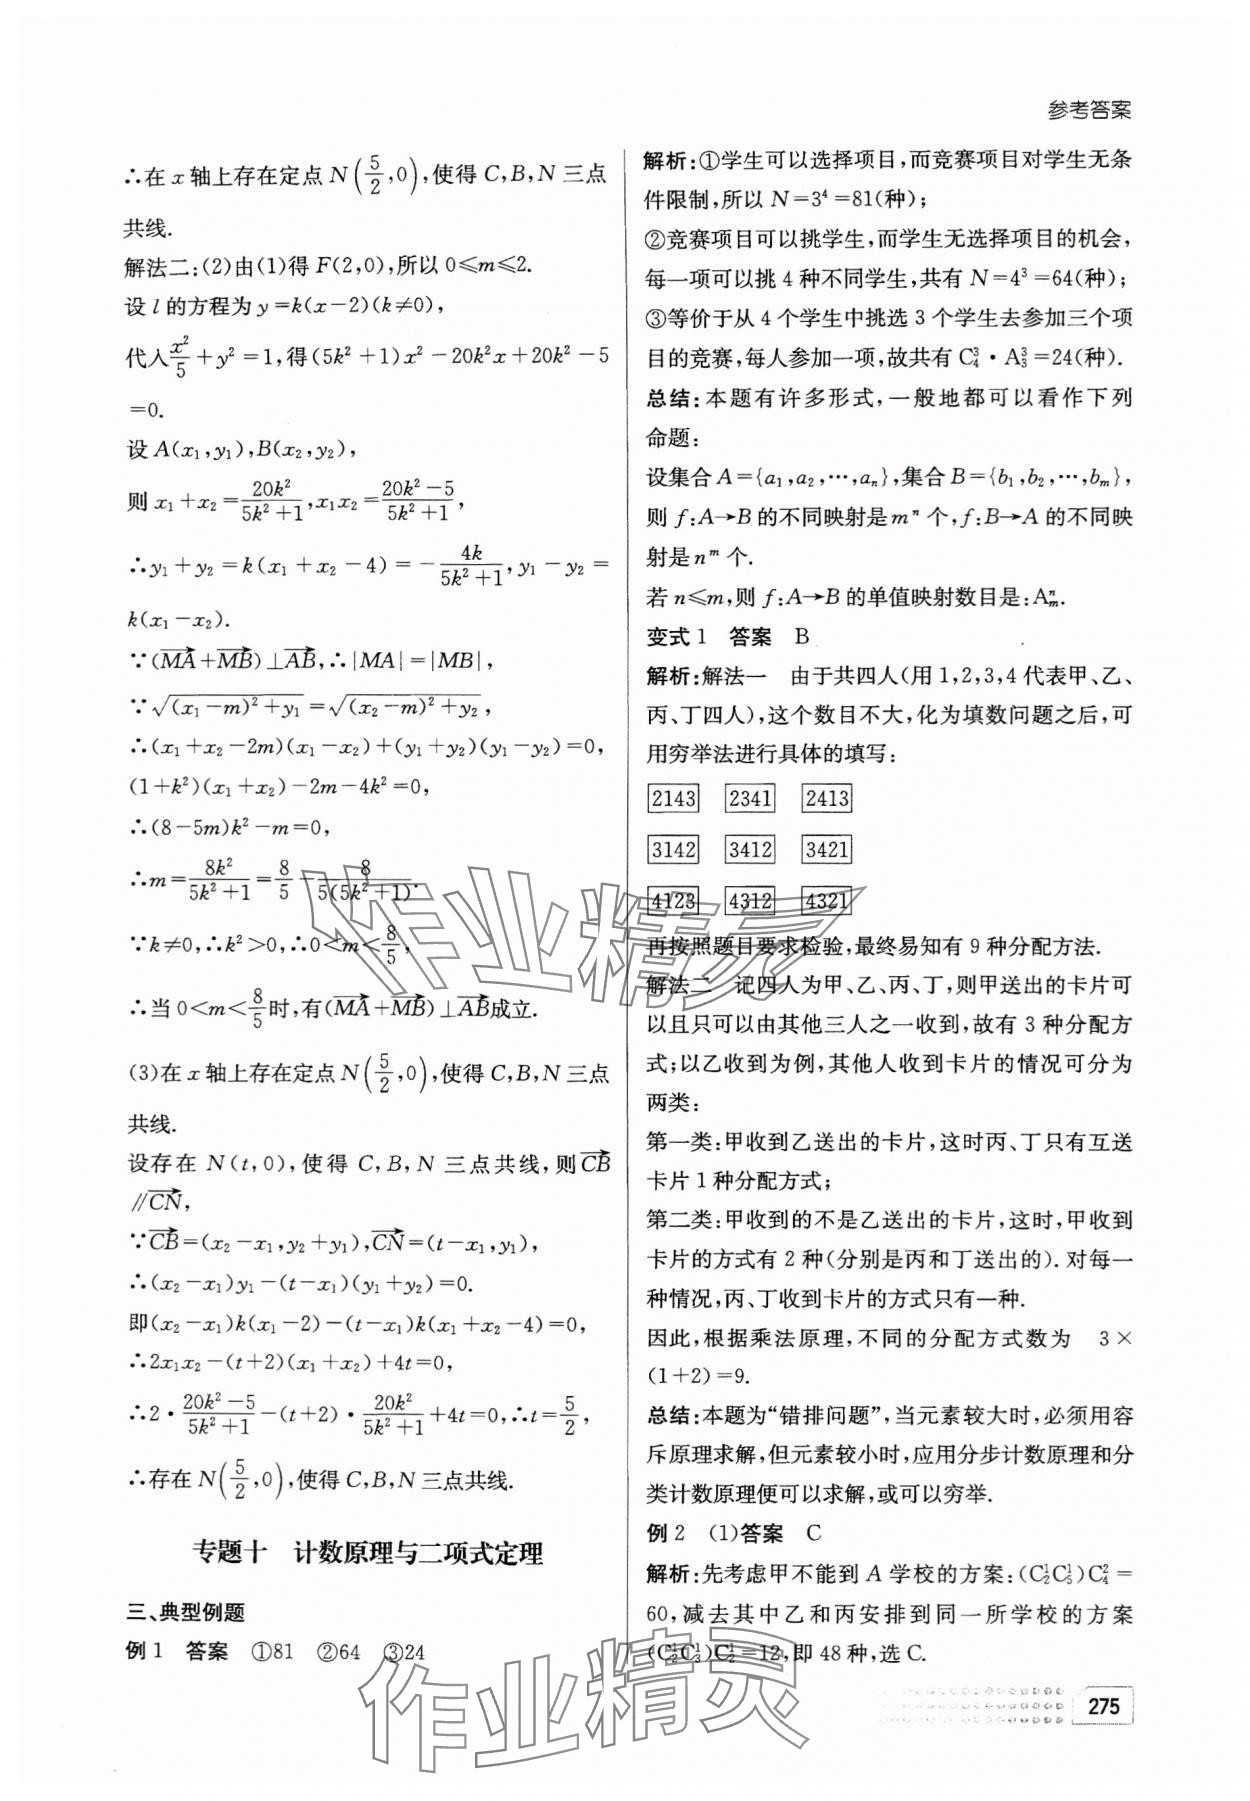 参考答案
∴在 x 轴上存在定点 N(5/2,0),使得 C,B,N 三点
共线.
解法二:(2)由(1)得 F(2,0),所以 0⩽m⩽2.
设 l 的方程为 y=k(x-2)(k≠0),
代入x²/5+y²=1,得(5k²+1)x²-20k²x+20k²-5
=0.
设 A(x₁,y₁),B(x₂,y₂),
则 x₁+x₂=20k²/(5k²+1),x₁x₂=(20k²-5)/(5k²+1),
∴y₁+y₂=k(x₁+x₂-4)=-4k/(5k²+1),y₁-y₂=
k(x₁-x₂).
∵(MA→+MB→)⊥AB→,∴|MA|=|MB|,
∵√((x₁-m)²+y₁)=√((x₂-m)²+y₂),
∴(x₁+x₂-2m)(x₁-x₂)+(y₁+y₂)(y₁-y₂)=0,
(1+k²)(x₁+x₂)-2m-4k²=0,
∴(8-5m)k²-m=0,
∴m=8k²/(5k²+1)=8/5-8/(5(5k²+1)).
∵k≠0,∴k²>0,∴0<m<8/5,
∴当 0<m<8/5时,有(MA→+MB→)⊥AB→成立.
(3)在 x 轴上存在定点 N(5/2,0),使得 C,B,N 三点
共线.
设存在 N(t,0),使得 C,B,N 三点共线,则CB→
∥CN→,
∵CB→=(x₂-x₁,y₂+y₁),CN→=(t-x₁,y₁),
∴(x₂-x₁)y₁-(t-x₁)(y₁+y₂)=0.
即(x₂-x₁)k(x₁-2)-(t-x₁)k(x₁+x₂-4)=0,
∴2x₁x₂-(t+2)(x₁+x₂)+4t=0,
∴2·(20k²-5)/(5k²+1)-(t+2)·20k²/(5k²+1)+4t=0,∴t=5/2,
∴存在 N(5/2,0),使得 C,B,N 三点共线.
专题十 计数原理与二项式定理
三、典型例题
例 1 答案 ①81 ②64 ③24
解析:①学生可以选择项目,而竞赛项目对学生无条
件限制,所以 N=3⁴=81(种);
②竞赛项目可以挑学生,而学生无选择项目的机会,
每一项可以挑 4 种不同学生,共有 N=4³=64(种);
③等价于从 4 个学生中挑选 3 个学生去参加三个项
目的竞赛,每人参加一项,故共有 C₄³·A₃³=24(种).
总结:本题有许多形式,一般地都可以看作下列
命题:
设集合 A={a₁,a₂,⋯,aₙ},集合 B={b₁,b₂,⋯,bₘ},
则 f:A→B 的不同映射是 mⁿ 个,f:B→A 的不同映
射是 nᵐ 个.
若 n⩽m,则 f:A→B 的单值映射数目是:Aₘⁿ.
变式 1 答案 B
解析:解法一 由于共四人(用 1,2,3,4 代表甲、乙、
丙、丁四人),这个数目不大,化为填数问题之后,可
用穷举法进行具体的填写:
2143 2341 2413
3142 3412 3421
4123 4312 4321
再按照题目要求检验,最终易知有 9 种分配方法.
解法二 记四人为甲、乙、丙、丁,则甲送出的卡片可
以且只可以由其他三人之一收到,故有 3 种分配方
式;以乙收到为例,其他人收到卡片的情况可分为
两类:
第一类:甲收到乙送出的卡片,这时丙、丁只有互送
卡片 1 种分配方式;
第二类:甲收到的不是乙送出的卡片,这时,甲收到
卡片的方式有 2 种(分别是丙和丁送出的).对每一
种情况,丙、丁收到卡片的方式只有一种.
因此,根据乘法原理,不同的分配方式数为 3×
(1+2)=9.
总结:本题为“错排问题”,当元素较大时,必须用容
斥原理求解,但元素较小时,应用分步计数原理和分
类计数原理便可以求解,或可以穷举.
例 2 (1)答案 C
解析:先考虑甲不能到 A 学校的方案:(C₂¹C₅¹)C₄²=
60,减去其中乙和丙安排到同一所学校的方案
(C₂¹C₃¹)C₂¹=12,即 48 种,选 C.
作业精灵
作业精灵
275